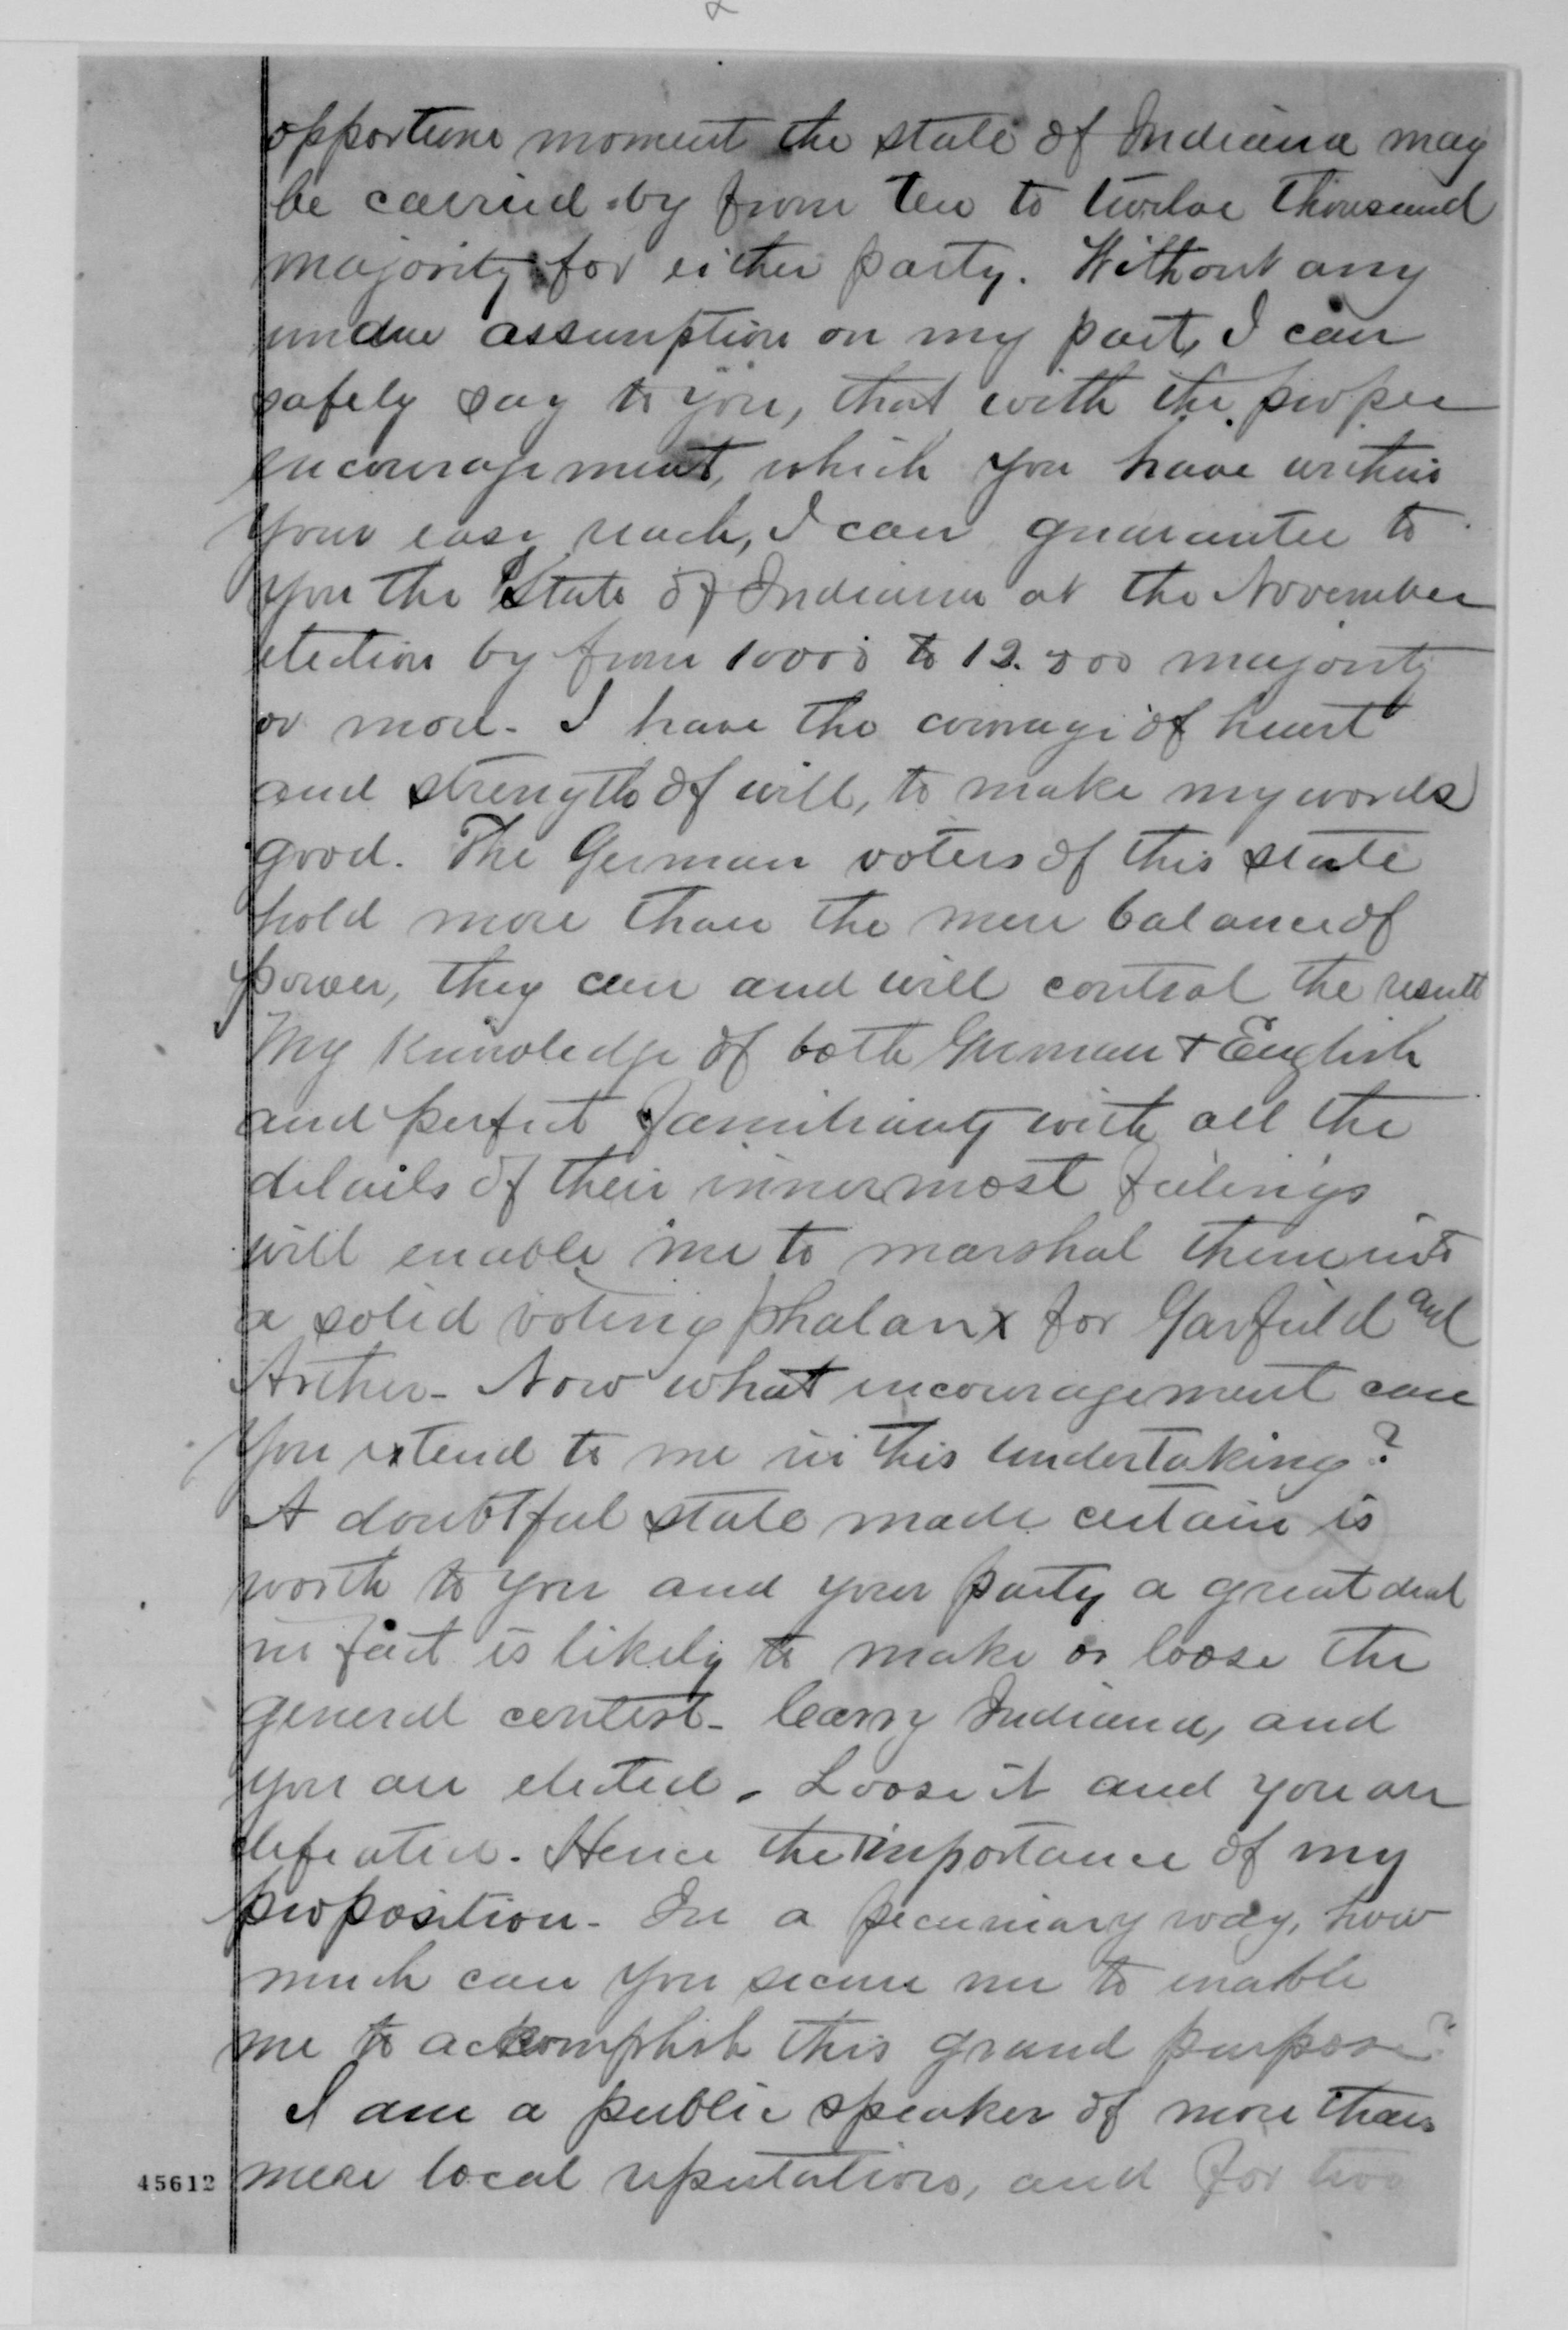 opportune moment the state of Indiana may
be carried by from ten to twelve thousand
majority for either party. Without any
undue assumption on my part, I can
safely say to you, that with the proper
encouragement, which you have within
your easy reach, I can guarantee to
you the State of Indiana at the November
election by from 10000 to 12.000 majority
or more - I have the courage of heart
and strength of will, to make my words
good. The German voters of this state
hold more than the mere balance of
power, they can and will control the result
My knowledge of both German + English
and perfect familiarity with all the
details of their innermost feelings
will enable me to marshal them into
a solid voting phalanx for Garfield and
Arthur - Now what encouragement can
you extend to me in this undertaking?
A doubtful state made certain is
worth to you and your party a great deal
in fact is likely to make or loose the
general contest - Carry Indiana, and
you are elected. Loose it and you are
defeated. Hence the importance of my
proposition - In a pecuniary way, how
much can you secure me to enable
me to accomplish this grand purpose?
I am a public speaker of more than
45612 mere local reputation, and for two